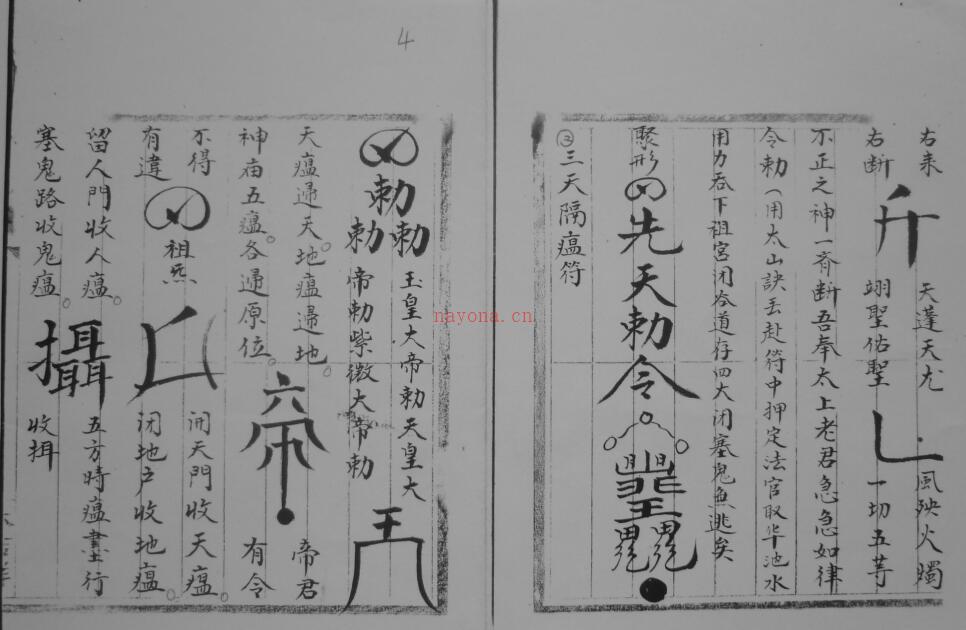 右来 天蓬天尤 風殃火燭
右断 翊聖佑聖 一切五芋
不正之神一斉断吾奉太上老君急急如律
令勅（用太山訣丢赴符中押定法官取华池水
用力吞下祖宫闭谷道存四大闭塞鬼無逃矣
聚形 先天勅令
③三天隔瘟符
4
勅勅勅 玉皇大帝勅天皇大
帝勅紫微大帝勅
天瘟歸天。地瘟歸地。 帝君
神庙五瘟。各還原位。 有令
不得 祖炁 開天門收天瘟。
有違 闭地户收地瘟。
留人門收人瘟。 五方時瘟 行
塞鬼路收鬼瘟。 攝 收捐
nayona.cn